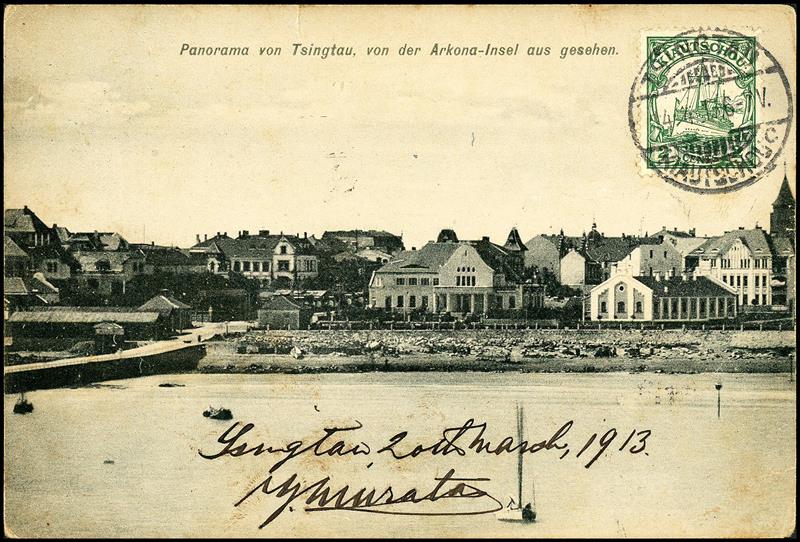 Panorama von Tsingtau, von der Arkona-Insel aus gesehen.
KIAUTSCHOU
Tsingtau 20th March, 1913.
Y. Murata